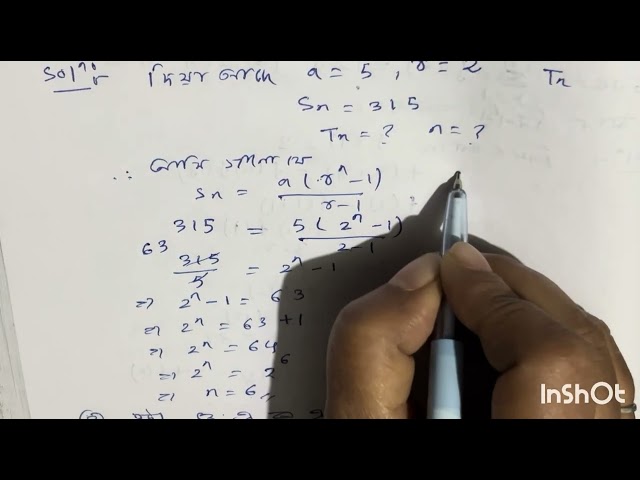 Solⁿ দিয়া আছে a = 5, r = 2 Tn
Sn = 315
Tn = ? n = ?
∴ আমি জানো যে
Sn = a(rⁿ-1) / r-1
315 = 5(2ⁿ-1) / 2-1
63
315/5 = 2ⁿ-1
⇒ 2ⁿ-1 = 63
⇒ 2ⁿ = 63+1
⇒ 2ⁿ = 64
⇒ 2ⁿ = 2⁶
⇒ n = 6
InShOt